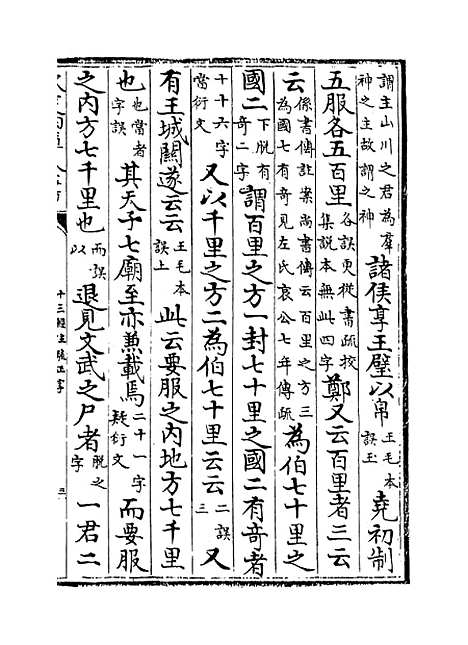 謂主山川之君為羣神之主故謂之神 諸侯享王璧以帛 王毛本誤玉 堯初制
五服各五百里 各誤更從書疏挍集說本無此四字 鄭又云百里者三云
云 係書傳註案尚書傳云百里之方三為國七有奇見左氏哀公七年傳疏 為伯七十里之
國二 下脫有奇二字 謂百里之方一封七十里之國二有奇者
十十六字當衍文 又以千里之方二為伯七十里云云 二誤三 又
有王城關遂云云 王毛本誤上 此云要服之內地方七千里
也 也當者字誤 其天子七廟至亦兼載焉 二十一字疑衍文 而要服
之內方七千里也 而誤以 退見文武之尸者 脫之字 一君二
十三經注疏正字 三